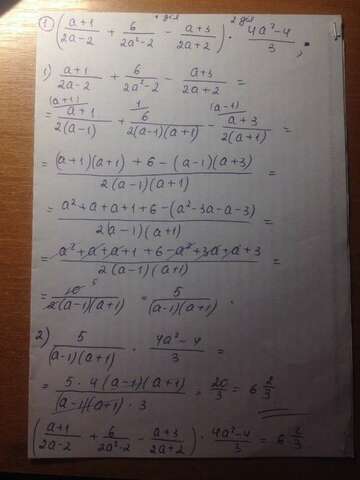 ① ( (a+1)/(2a-2) + 6/(2a²-2) - (a+3)/(2a+2) ) · (4a²-4)/3 ,
1) (a+1)/(2a-2) + 6/(2a²-2) - (a+3)/(2a+2) =
(a+1) 1 (a-1)
= (a+1)/(2(a-1)) + 6/(2(a-1)(a+1)) - (a+3)/(2(a+1)) =
= ((a+1)(a+1) + 6 - (a-1)(a+3))/(2(a-1)(a+1)) =
= (a²+a+a+1+6-(a²-3a-a-3))/(2(a-1)(a+1)) =
= (a²+a+a+1+6-a²+3a+a+3)/(2(a-1)(a+1)) =
= 10 5/(2(a-1)(a+1)) = 5/((a-1)(a+1)) .
2) 5/((a-1)(a+1)) · (4a²-4)/3 =
= (5·4(a-1)(a+1))/((a-1)(a+1)·3) = 20/3 = 6 2/3
( (a+1)/(2a-2) + 6/(2a²-2) - (a+3)/(2a+2) ) · (4a²-4)/3 = 6 2/3